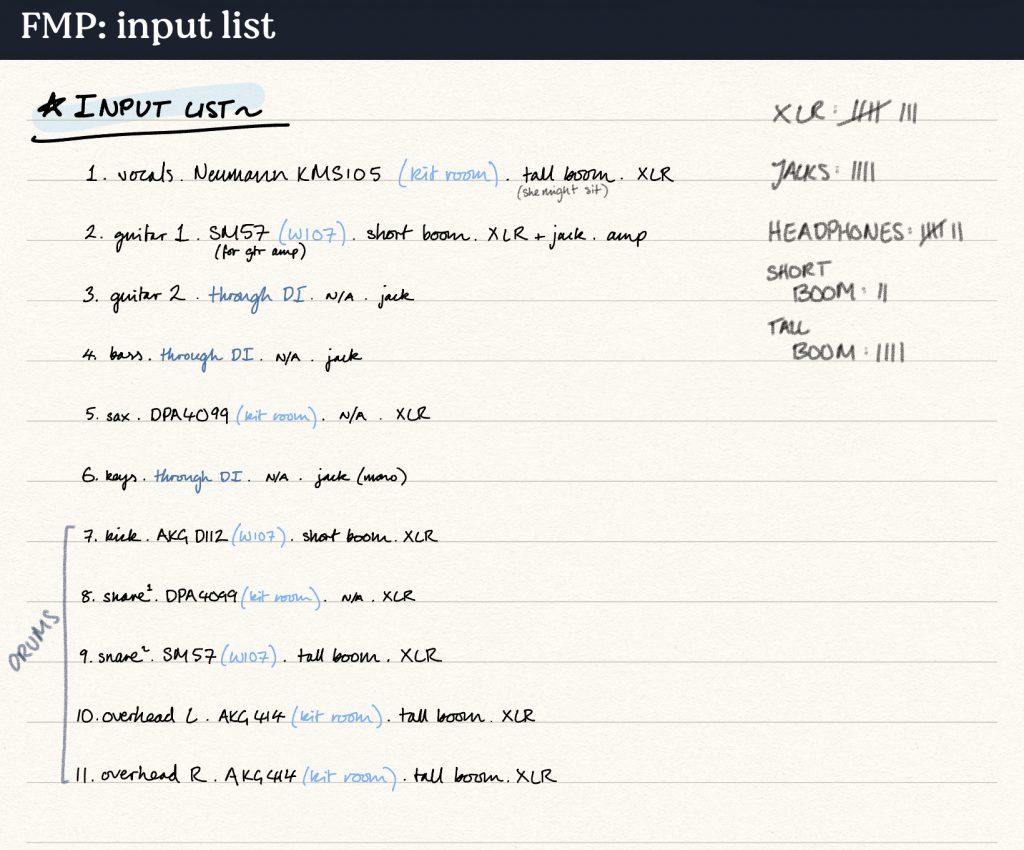 FMP: input list
INPUT LIST~
1. vocals. Neumann KMS105 (kit room). tall boom. XLR
(she might sit)
2. guitar 1. SM57 (W107). short boom. XLR + jack. amp
(for gtr amp)
3. guitar 2. through DI. N/A. jack
4. bass. through DI. N/A. jack
5. sax. DPA4099 (kit room). N/A. XLR
6. keys. through DI. N/A. jack (mono)
DRUMS
7. kick. AKG D112 (W107). short boom. XLR
8. snare¹. DPA4099 (kit room). N/A. XLR
9. snare². SM57 (W107). tall boom. XLR
10. overhead L. AKG 414 (kit room). tall boom. XLR
11. overhead R. AKG 414 (kit room). tall boom. XLR
XLR: 卌 |||
JACKS: ||||
HEADPHONES: 卌 ||
SHORT
BOOM: ||
TALL
BOOM: ||||